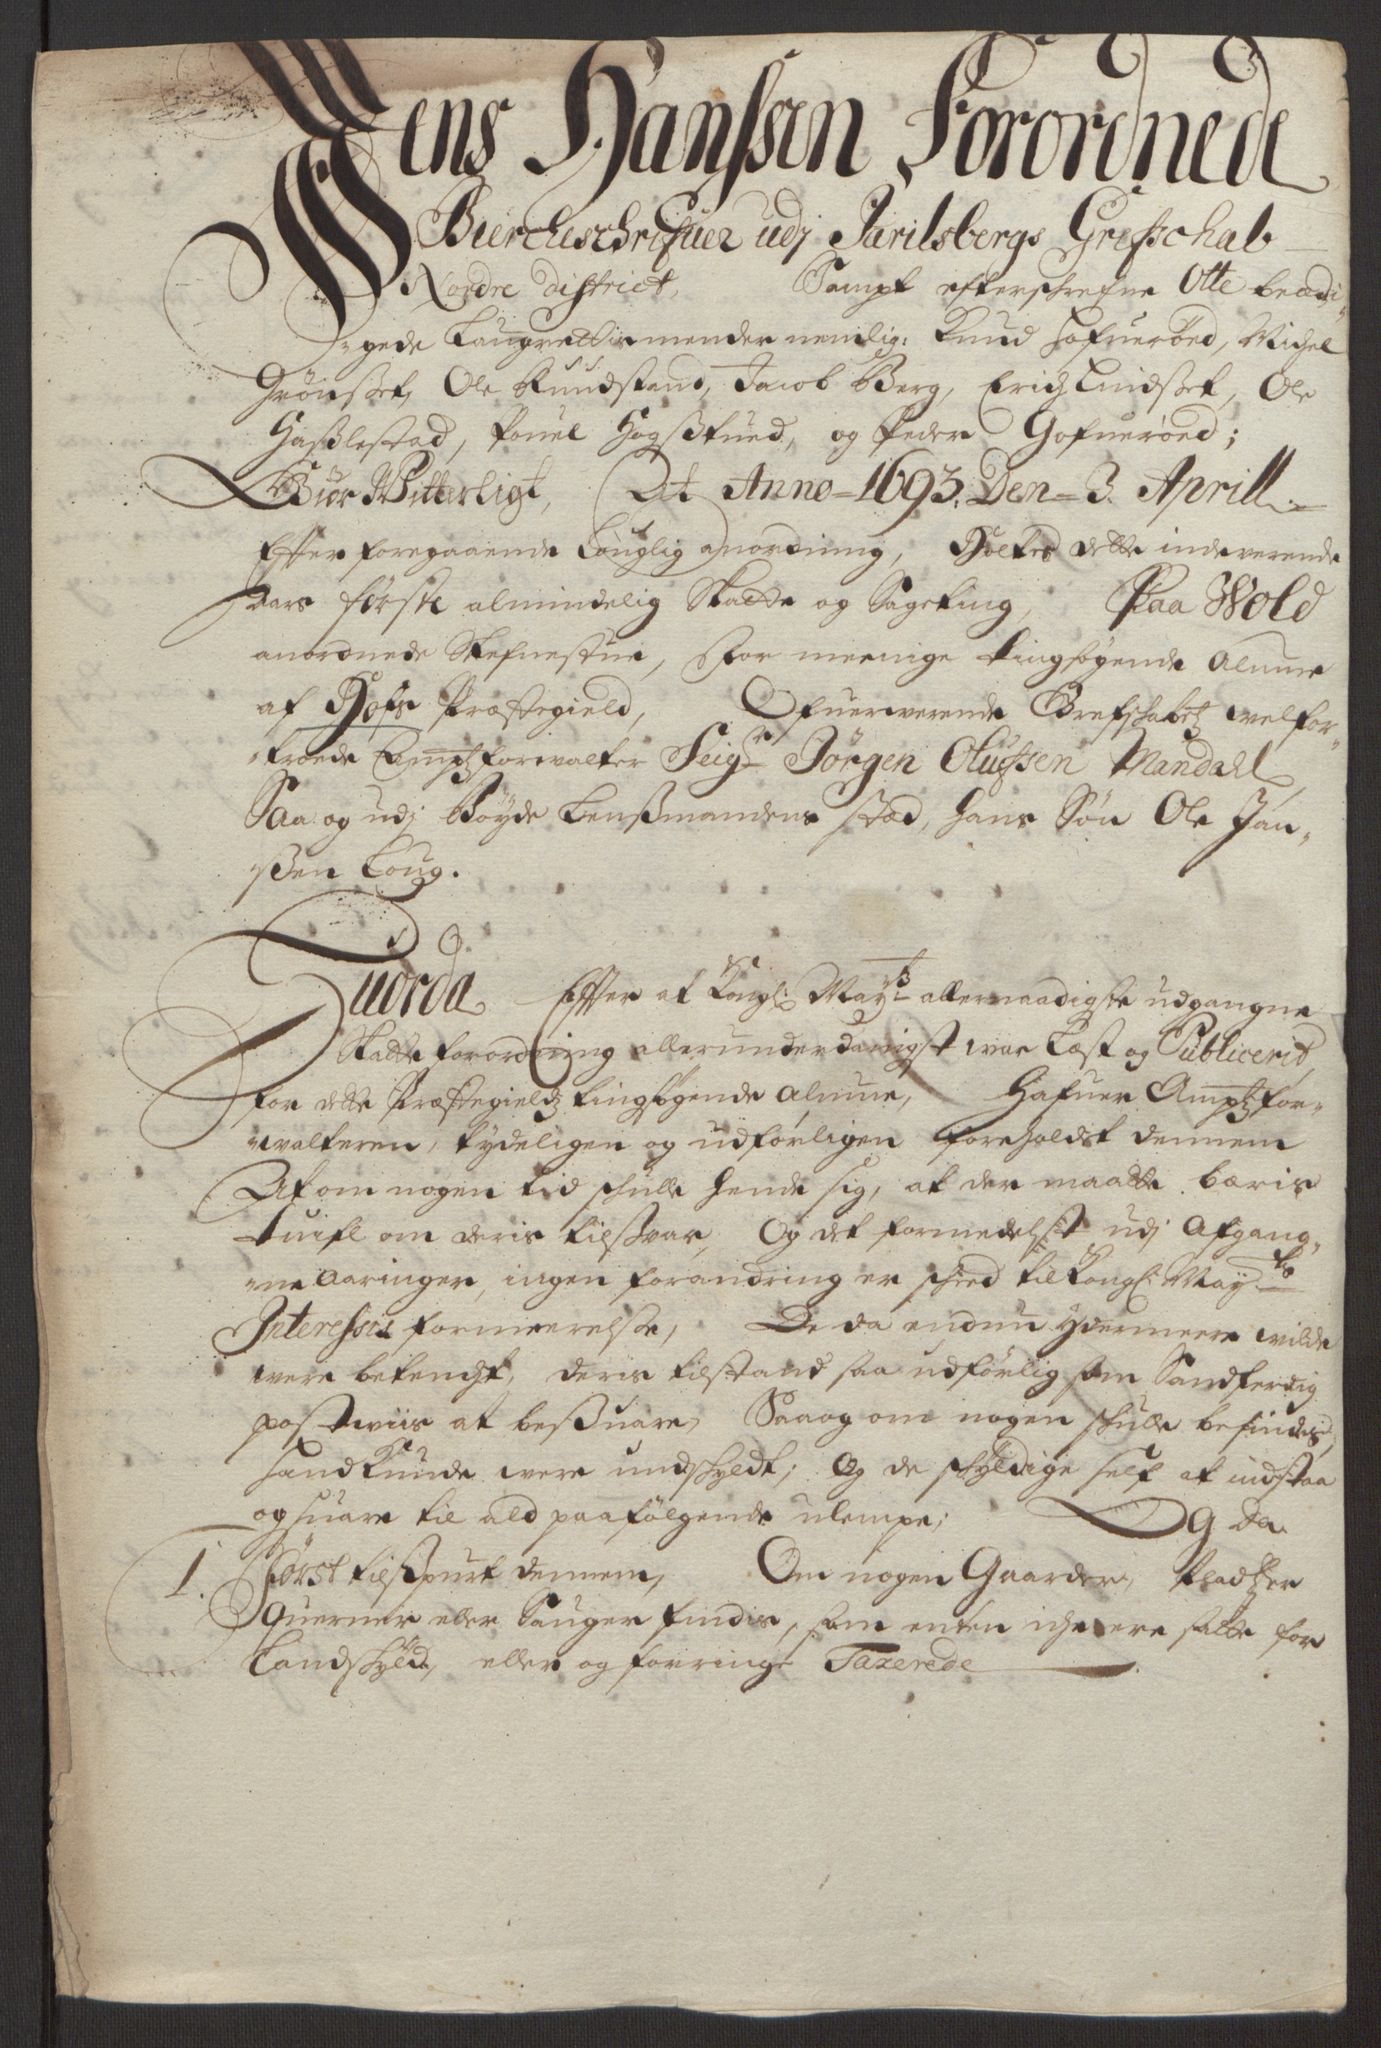 Jens Hanssøn Forordnede
Biercheschrifuer udj Jarilsbergs Grefschab
Nordre District, Sampt efterschrefne Otte beædi¬
gede Laugrettismender nemlig: Knud Hofuerøed, Michel
Grønset, Ole Rundstand, Jacob Berg, Erich Lindset, Ole
Haslestad, Pouel Hogstued, og Peder Gofuerøed;
Giør Witterligt, At Anno 1693. Den 3. Aprill
Effter foregaaende louglig anordning, Holtes dette indeverende
Aars første almindelig Skatte og Sageting, Paa Wold
anordnede Stefnestue, for meenige tingsøgende Almue
af Hofs Præstegield, Ofuerwerende Grefschabetz welfor¬
troede Amptzforwalter Seigr Jørgen Olufsen Mandahl
Saa og udj Bøyde Lensmandens sted, hans Søn Ole Jan¬
sen Loug.
Huorda Effter at Kongl: Mayts allernaadigste udgangne
Skatteforordning allerunderdanigst war Læst og Publicerit
for dette Præstegieldtz tingsøgende Almue, Hafuer Amptzfor¬
walteren, tydeligen og udførligen foreholdt dennem
At om nogen tid schulle hende sig, at der maatte bæris
tuifl om deris tilsvar, Og det formedelst udj Afgang¬
ne Aaringer, ingen forandring er scheed til Kongl: Mayts
Interesses formeerelse, De da endnu ydermeere wilde
were betencht, deris tilstand saa udførlig som Sandferdig
postwiis at besuare, Saa og om nogen schulle befindes,
hand kunde were undschyldt; Og de schyldige self at indstaa
og suare til ald paafølgende ulempe; Og da
1. Først tilspurt dennem, Om nogen Gaarder, Pladtzer
Querner eller Sauger findis, som enten iche ere satte for
Landschyld, eller og for ringe Taxerede